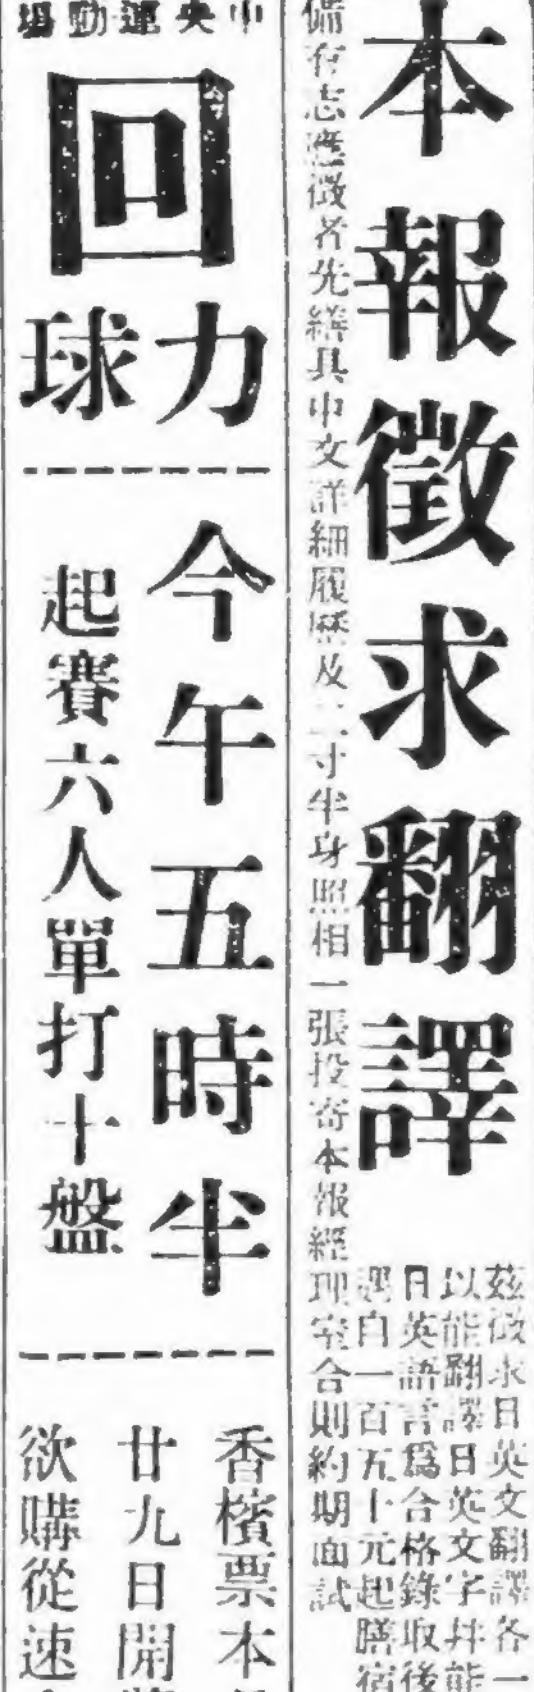 本報徵求翻譯
茲徵求日英文翻譯各一
以能翻譯日英文字幷能
日英語言爲合格錄取後
遇自一百五十元起膳宿
備有志應徵者先繕具中文詳細履歷及二寸半身照相一張投寄本報經理室合則約期面試
中央運動場
回
力
球
今午五時半
起賽六人單打十盤
香檳票本
廿九日開
欲購從速